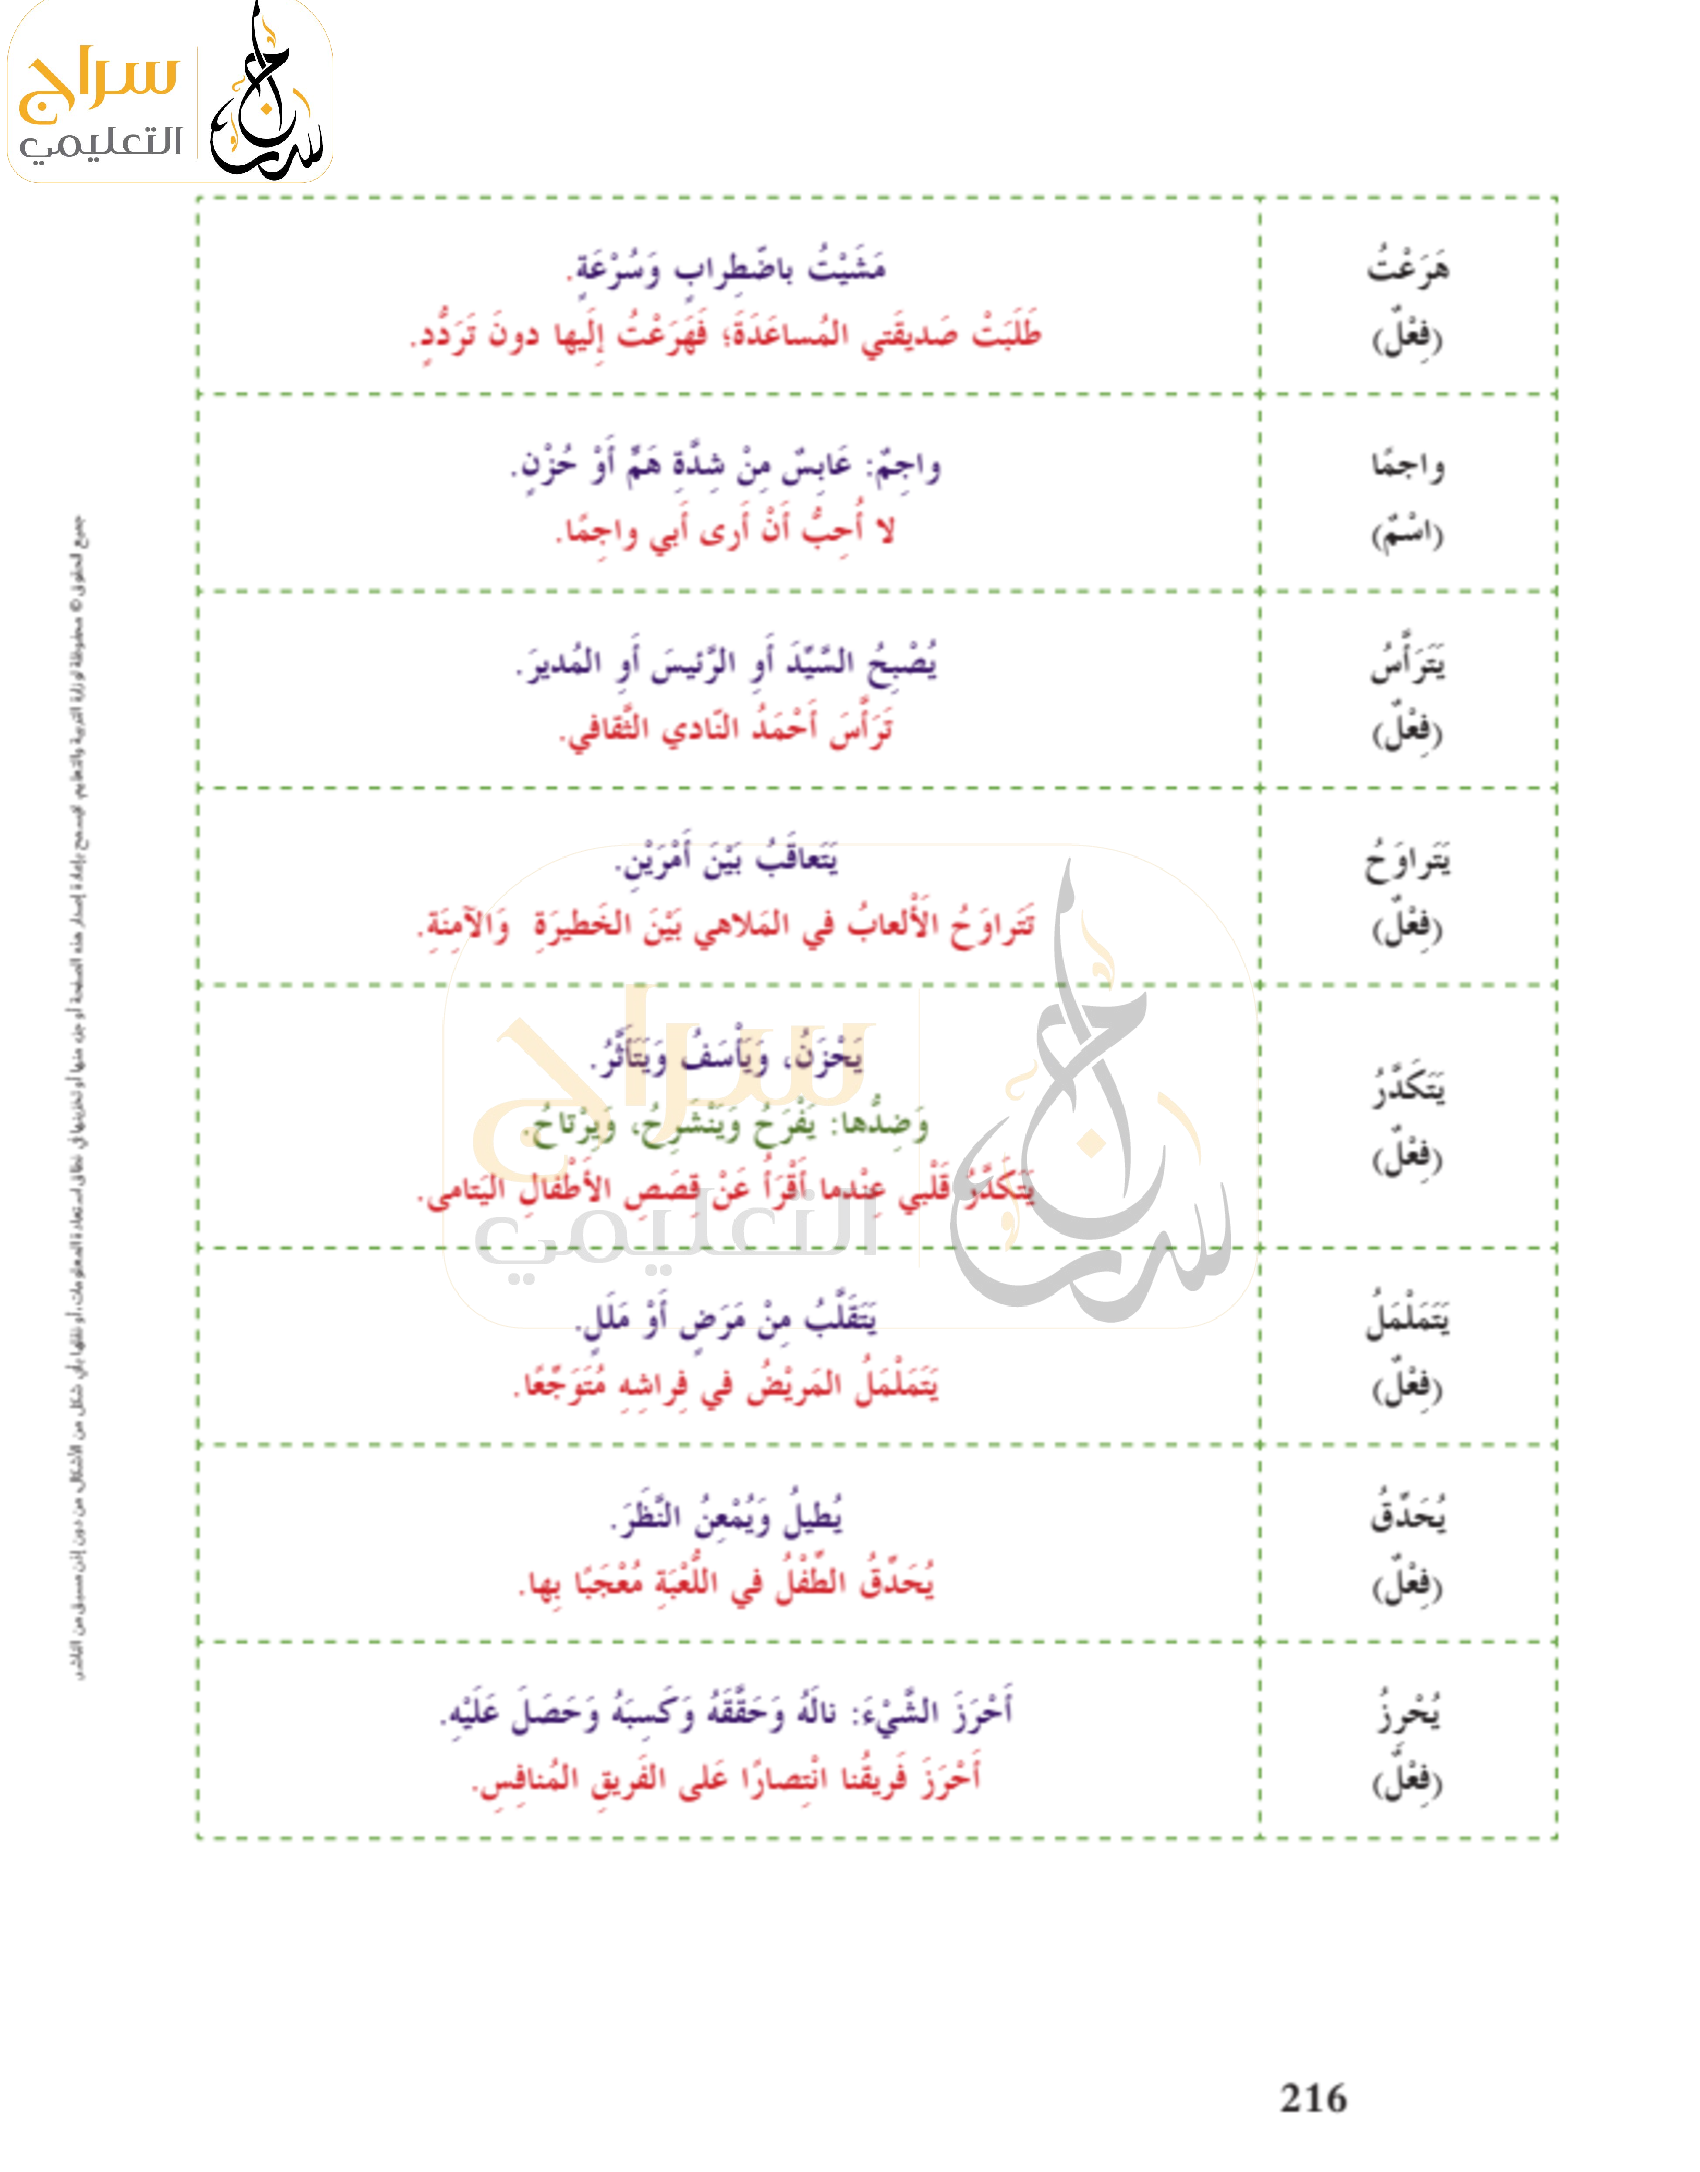 سراج
التعليمي
هَرَعْتُ
(فِعْلٌ)
مَشَيْتُ باضّطِرابٍ وَسُرْعَةٍ.
طَلَبَتْ صَديقَتي المُساعَدَةَ؛ فَهَرَعْتُ إِلَيها دونَ تَرَدُّدٍ.
واجمًا
(اسْمٌ)
واجِمٌ: عَابِسٌ مِنْ شِدَّةِ هَمٍّ أَوْ حُزْنٍ.
لا أُحِبُّ أَنْ أَرى أَبي واجِمًا.
يَتَرَأَّسُ
(فِعْلٌ)
يُصْبِحُ السَّيِّدَ أَوِ الرَّئيسَ أَوِ المُديرَ.
تَرَأَّسَ أَحْمَدُ النّادي الثَّقافي.
يَتَراوَحُ
(فِعْلٌ)
يَتَعاقَبُ بَيْنَ أَمْرَيْنِ.
تَتَراوَحُ الأَلْعابُ في المَلاهي بَيْنَ الخَطيرَةِ وَالآمِنَةِ.
يَتَكَدَّرُ
(فِعْلٌ)
يَحْزَنُ، وَيَأْسَفُ وَيَتَأَثَّرُ.
وَضِدُّها: يَفْرَحُ وَيَنْشَرِحُ، وَيِرْتاحُ.
يَتَكَدَّرُ قَلْبي عِنْدما أَقْرَأُ عَنْ قِصَصِ الأَطْفالِ اليَتامى.
يَتَمَلْمَلُ
(فِعْلٌ)
يَتَقَلَّبُ مِنْ مَرَضٍ أَوْ مَلَلٍ.
يَتَمَلْمَلُ المَريْضُ في فِراشِهِ مُتَوَجِّعًا.
يُحَدِّقُ
(فِعْلٌ)
يُطيلُ وَيُمْعِنُ النَّظَرَ.
يُحَدِّقُ الطِّفْلُ في اللُّعْبَةِ مُعْجَبًا بِها.
يُحْرِزُ
(فِعْلٌ)
أَحْرَزَ الشَّيْءَ: نالَهُ وَحَقَّقَهُ وَكَسِبَهُ وَحَصَلَ عَلَيْهِ.
أَحْرَزَ فَريقُنا انْتِصارًا عَلى الفَريقِ المُنافِسِ.
سراج
التعليمي
جميع الحقوق © محفوظة لوزارة التربية والتعليم. لا يسمح بإعادة إصدار هذه الصفحة أو جزء منها أو تخزينها في نطاق استعادة المعلومات، أو نقلها بأي شكل من الأشكال، من دون إذن مسبق من الناشر.
216